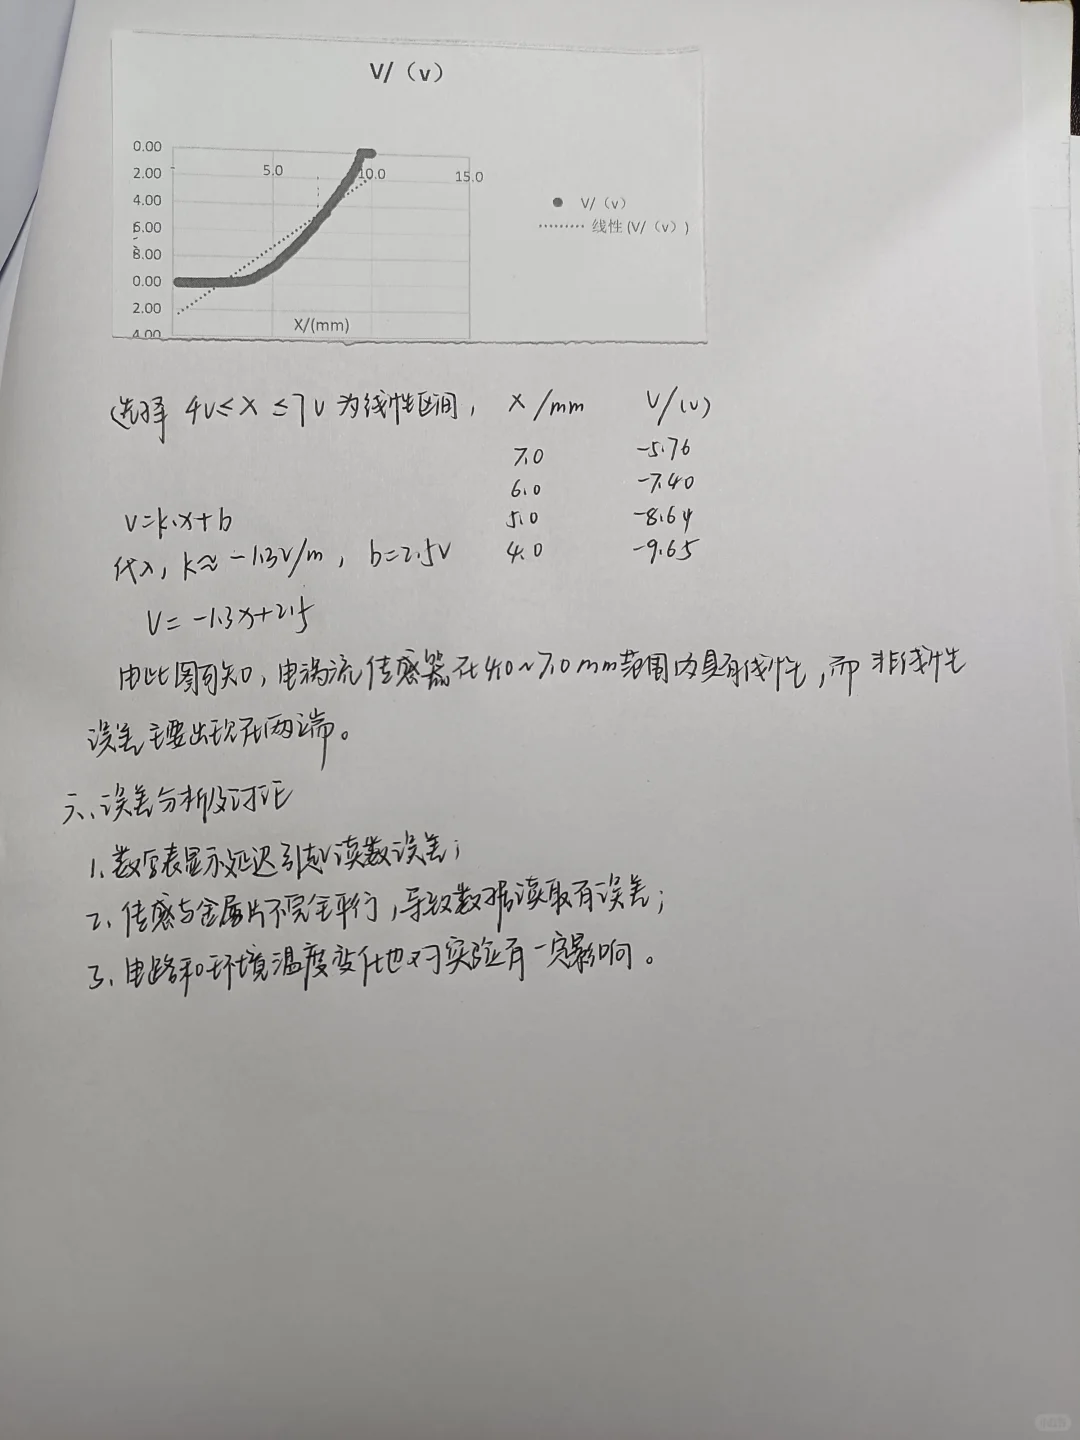 V/（v）
0.00
5.0 10.0 15.0
2.00
4.00
6.00
8.00
0.00
2.00
4.00
X/(mm)
V/（v）
线性(V/（v）)
选择 4v≤X≤7v 为线性区间， X/mm V/(v)
7.0 -5.76
6.0 -7.40
5.0 -8.64
4.0 -9.65
V=k·x+b
代入，k≈-1.3v/m，b=2.5V
V=-1.3x+2.5
由此图可知，电涡流传感器在4.0~7.0mm范围内具有线性，而非线性
误差主要出现在两端。
六、误差分析及讨论
1、数字表显示延迟引起读数误差；
2、传感与金属片不完全平行，导致数据读取有误差；
3、电路和环境温度变化也对实验有一定影响。